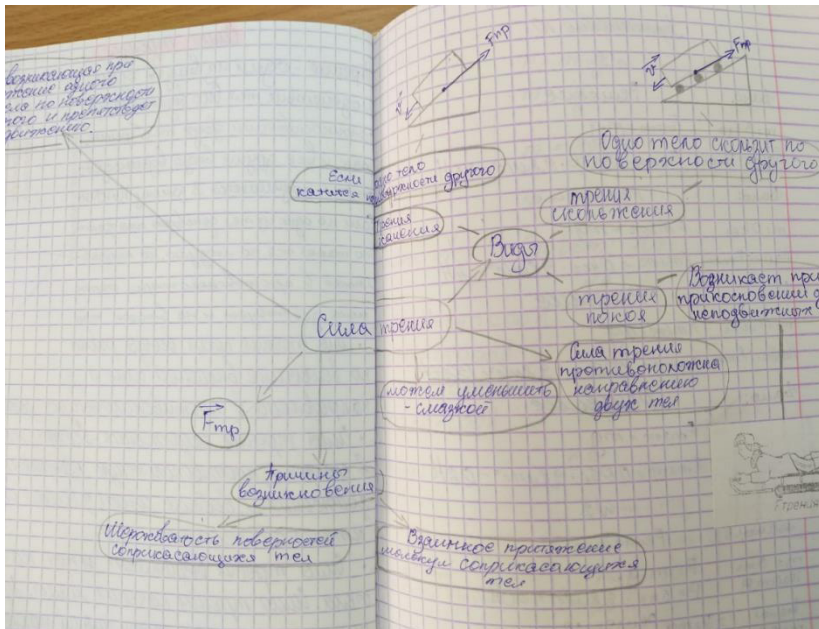 возникающая при
движение одного
тела по поверхности
другого и препятствует
движению.
Fтр
v
Fтр
v
Если одно тело
катится по поверхности другого
Одно тело скользит по
поверхности другого
трения
качения
трения
скольжения
Виды
трения
покоя
Возникает при
прикосновении
неподвижных
Сила трения
Сила трения
противоположна
направлению
двух тел
можем уменьшить
- смазкой
Fтр
Причины
возникновения
Шероховатость поверхностей
соприкасающихся тел
Взаимное притяжение
молекул соприкасающихся
тел
Fтрения